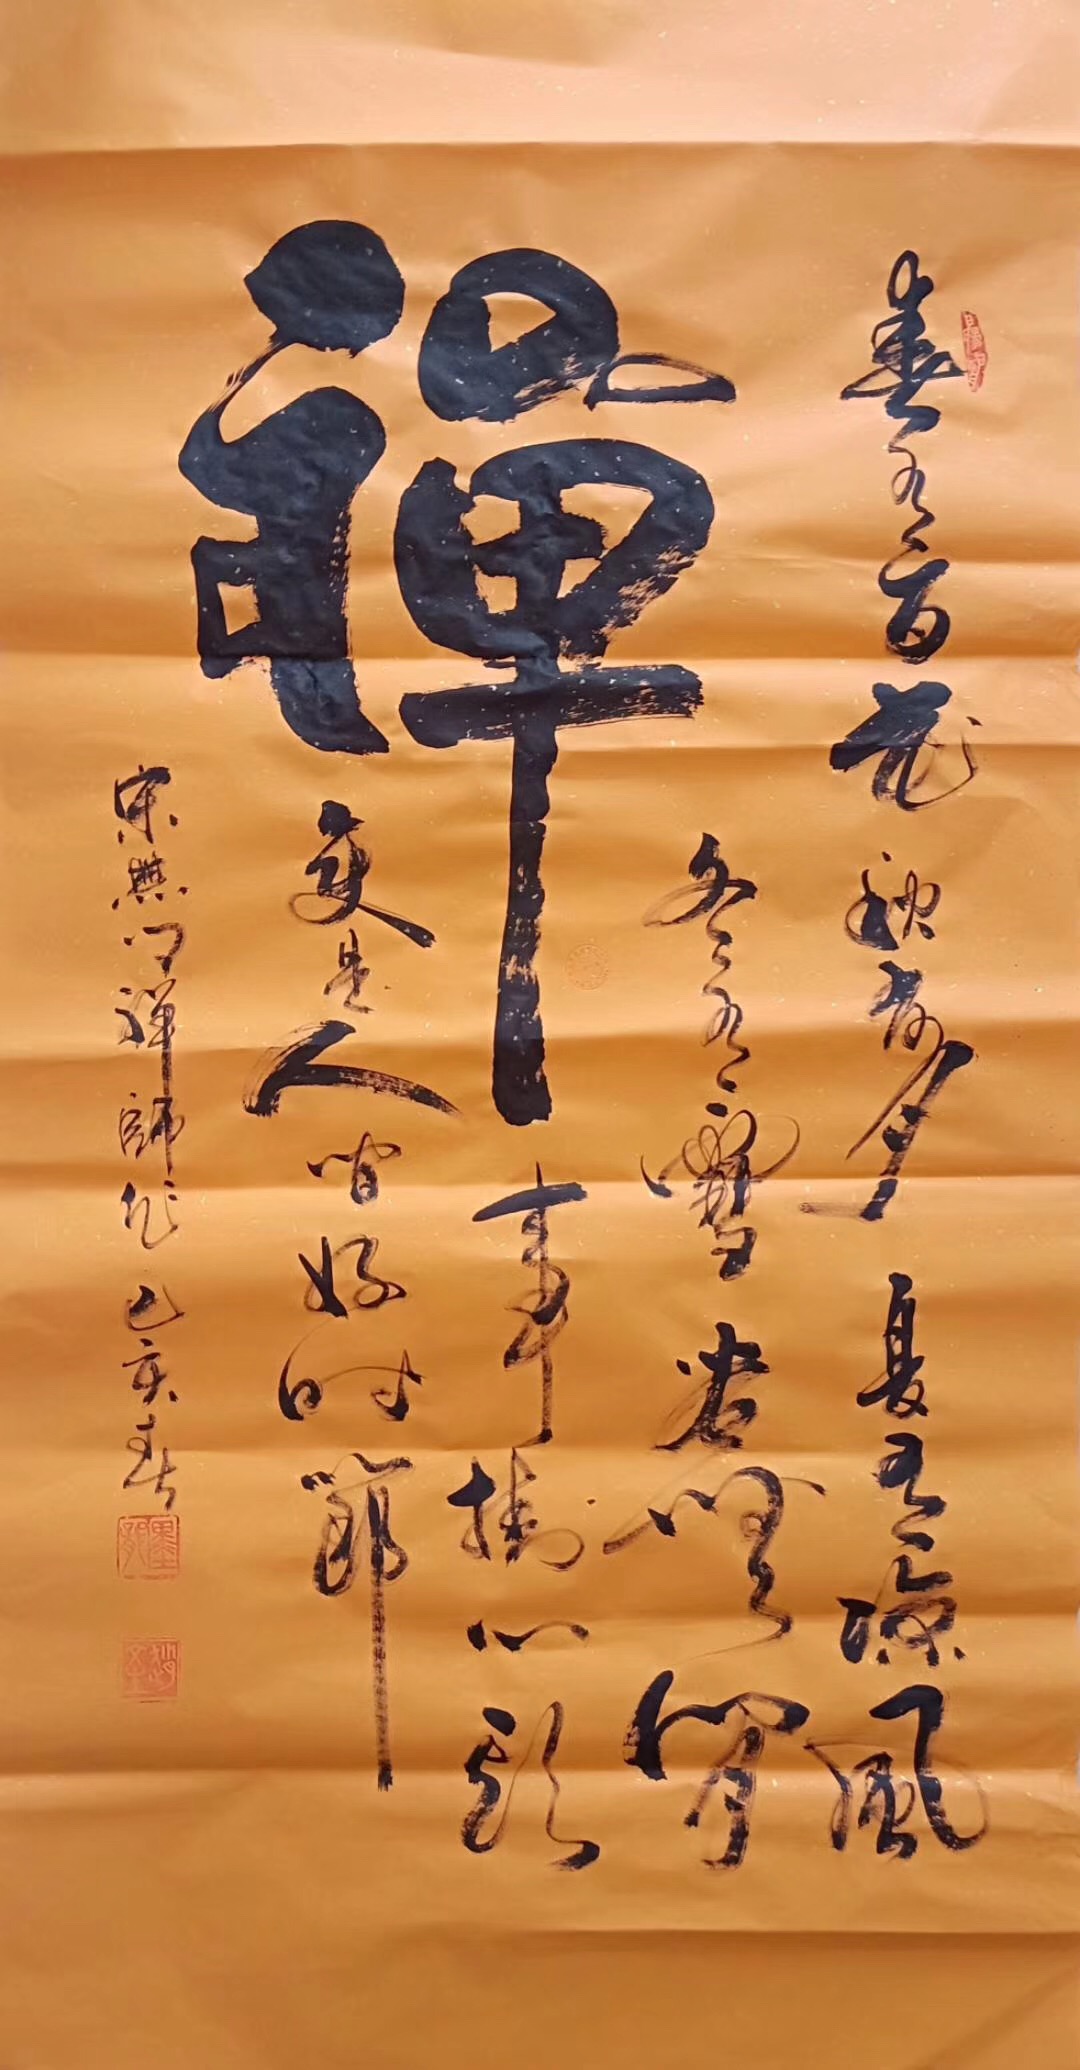 禪
春有百花秋有月夏有涼風
冬有雪若無閒
事掛心頭
更是人間好時節
宋無門禪師作己亥春